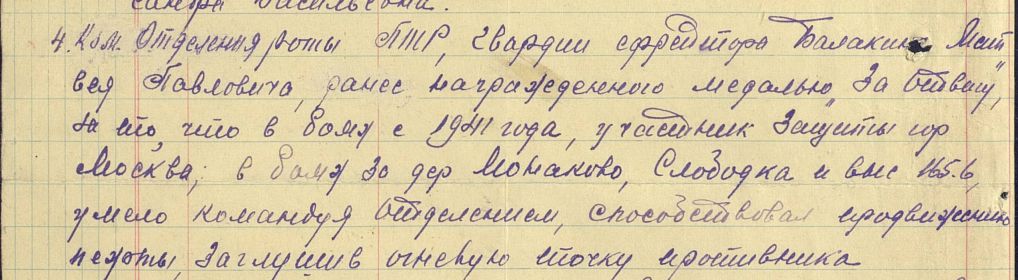 сандра Васильевича.
4. Ком. Отделения роты ПТР, гвардии ефрейтора Балакина Мат
вея Павловича, ранее награжденного медалью "За Отвагу",
за то, что в боях с 1941 года, участник Защиты гор
Москва; в боях за дер Монаково, Слободка и выс 165.6,
умело командуя Отделением, способствовал продвижению
пехоты, заглушив огневую точку противника